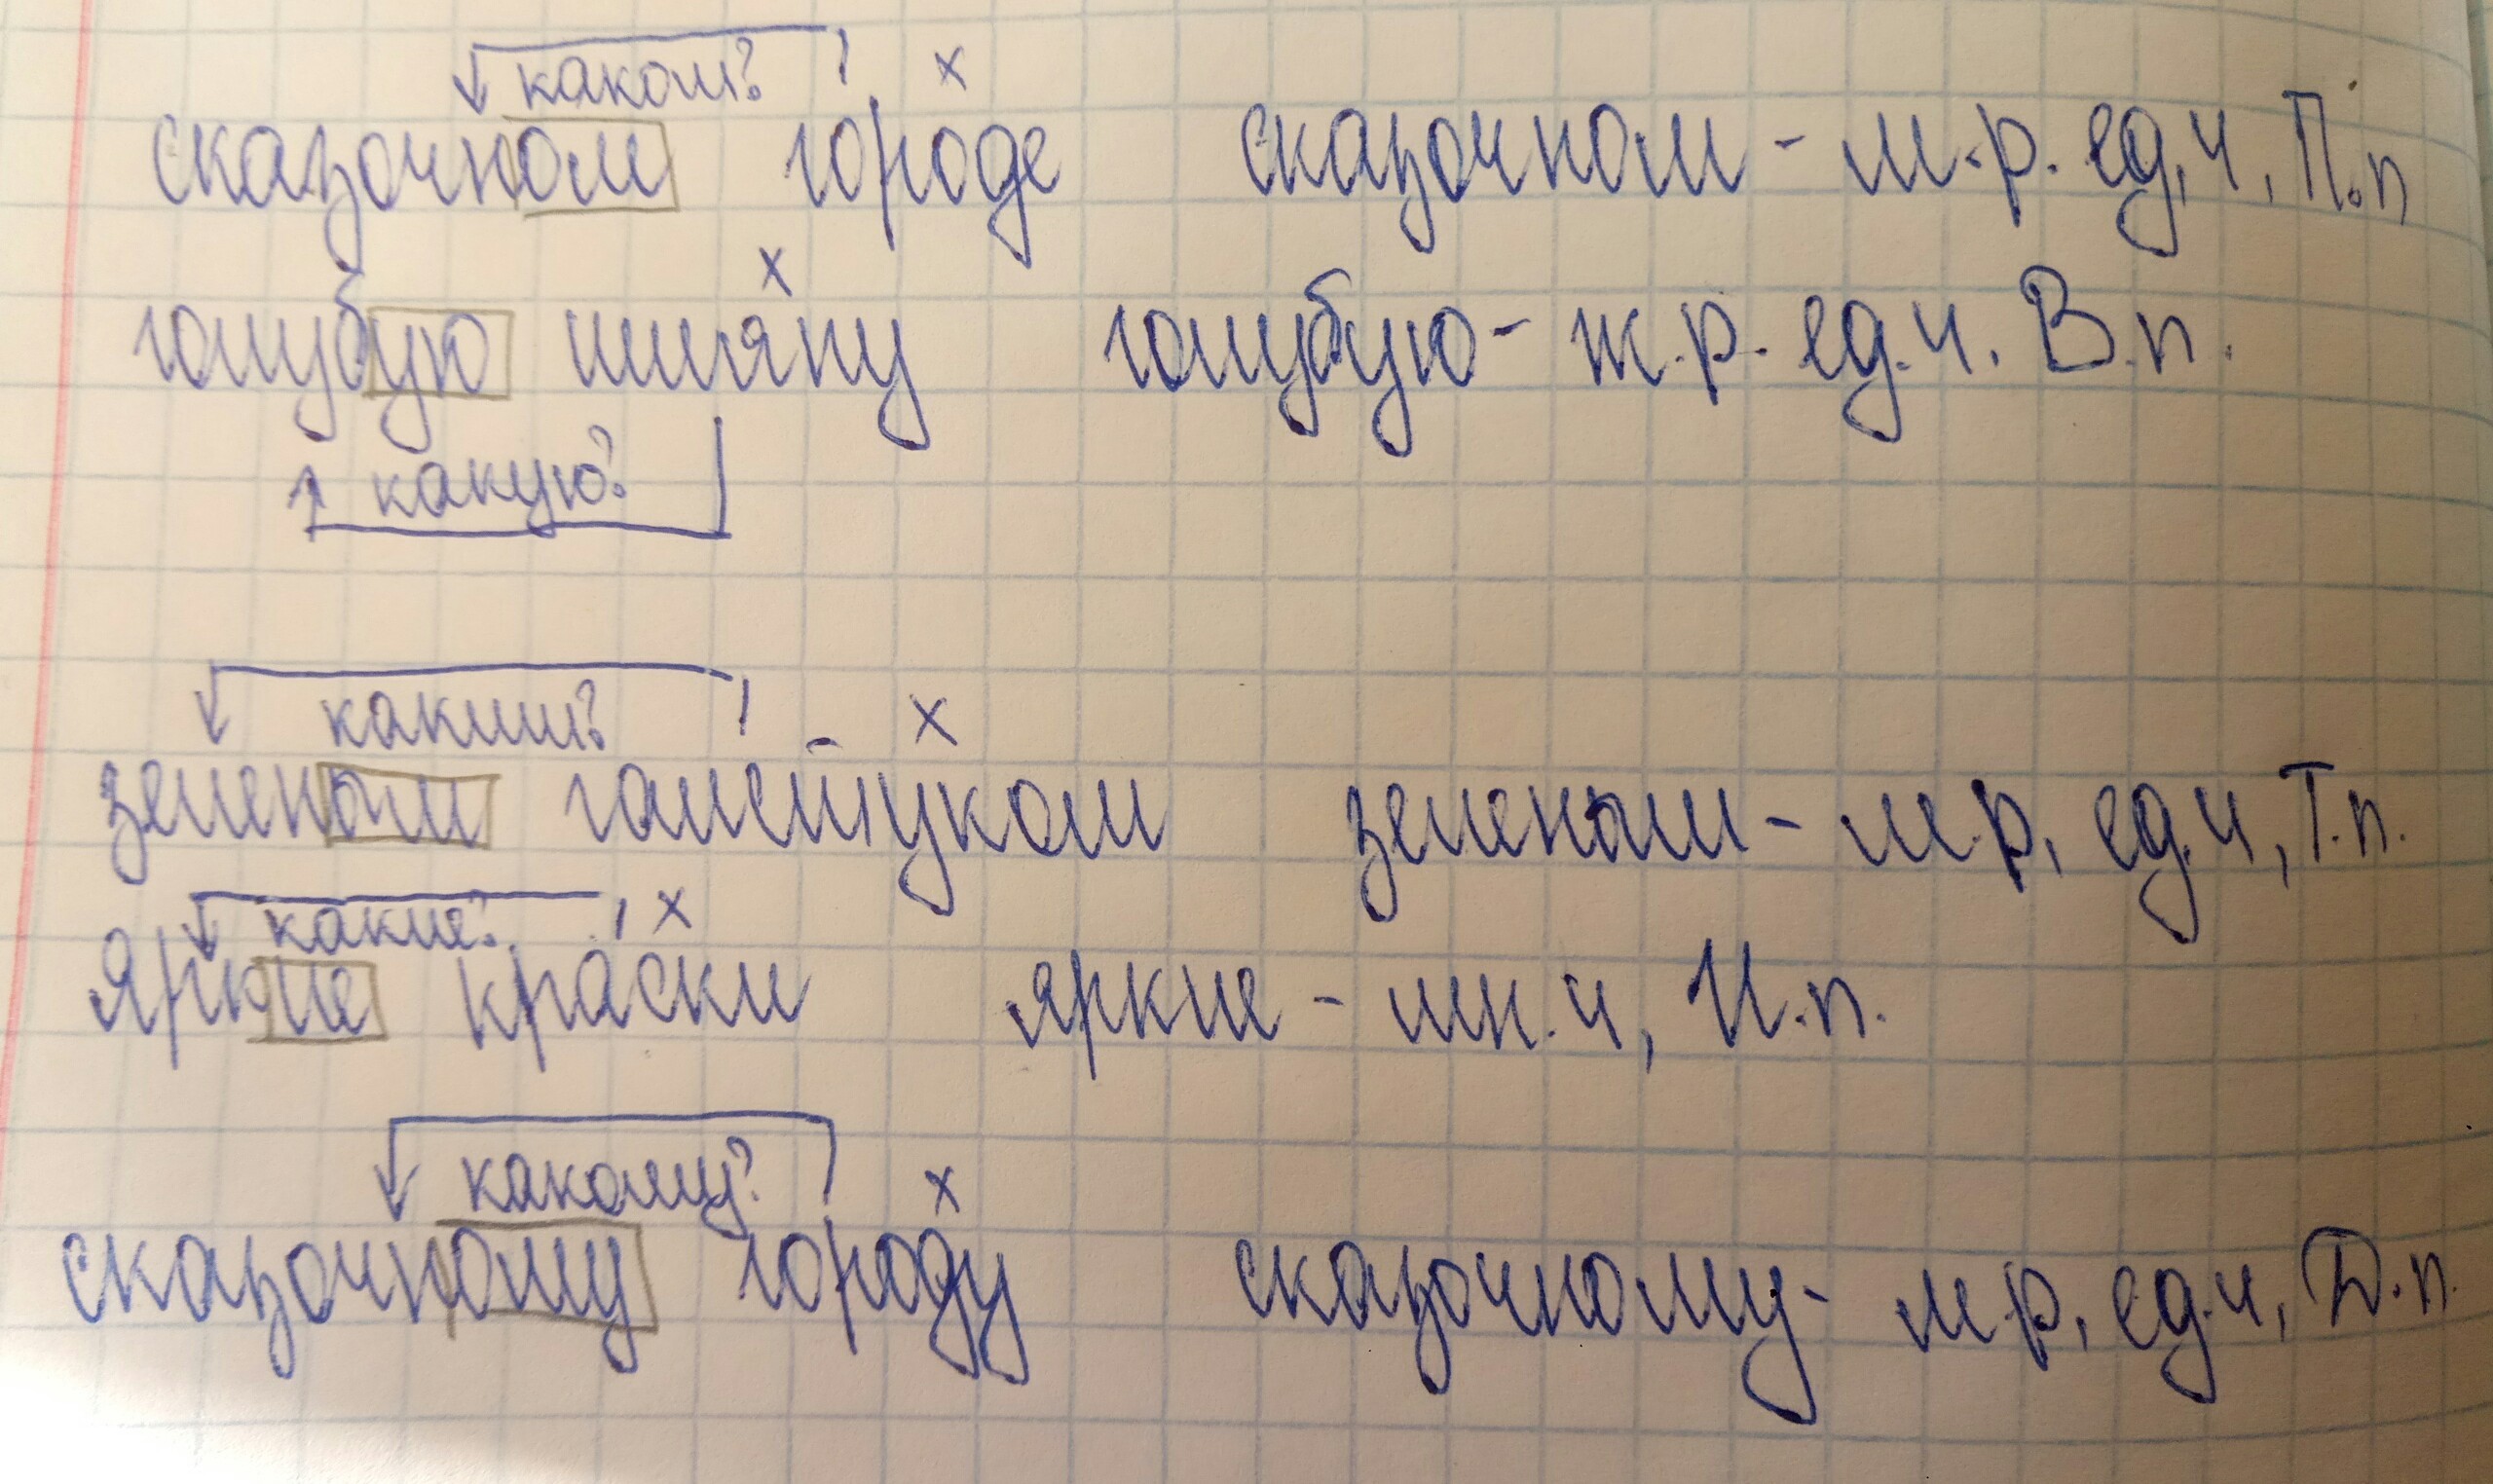 какой?
х
сказочном городе сказочном - м.р. ед.ч, П.п
х
голубую шляпу голубую - ж.р. ед.ч. В.п.
какую?
каким? х
зеленым галстуком зеленым - м.р, ед.ч, Т.п.
какие? х
Яркие краски яркие - мн.ч, И.п.
какому? х
сказочному городу сказочному - м.р, ед.ч, Д.п.